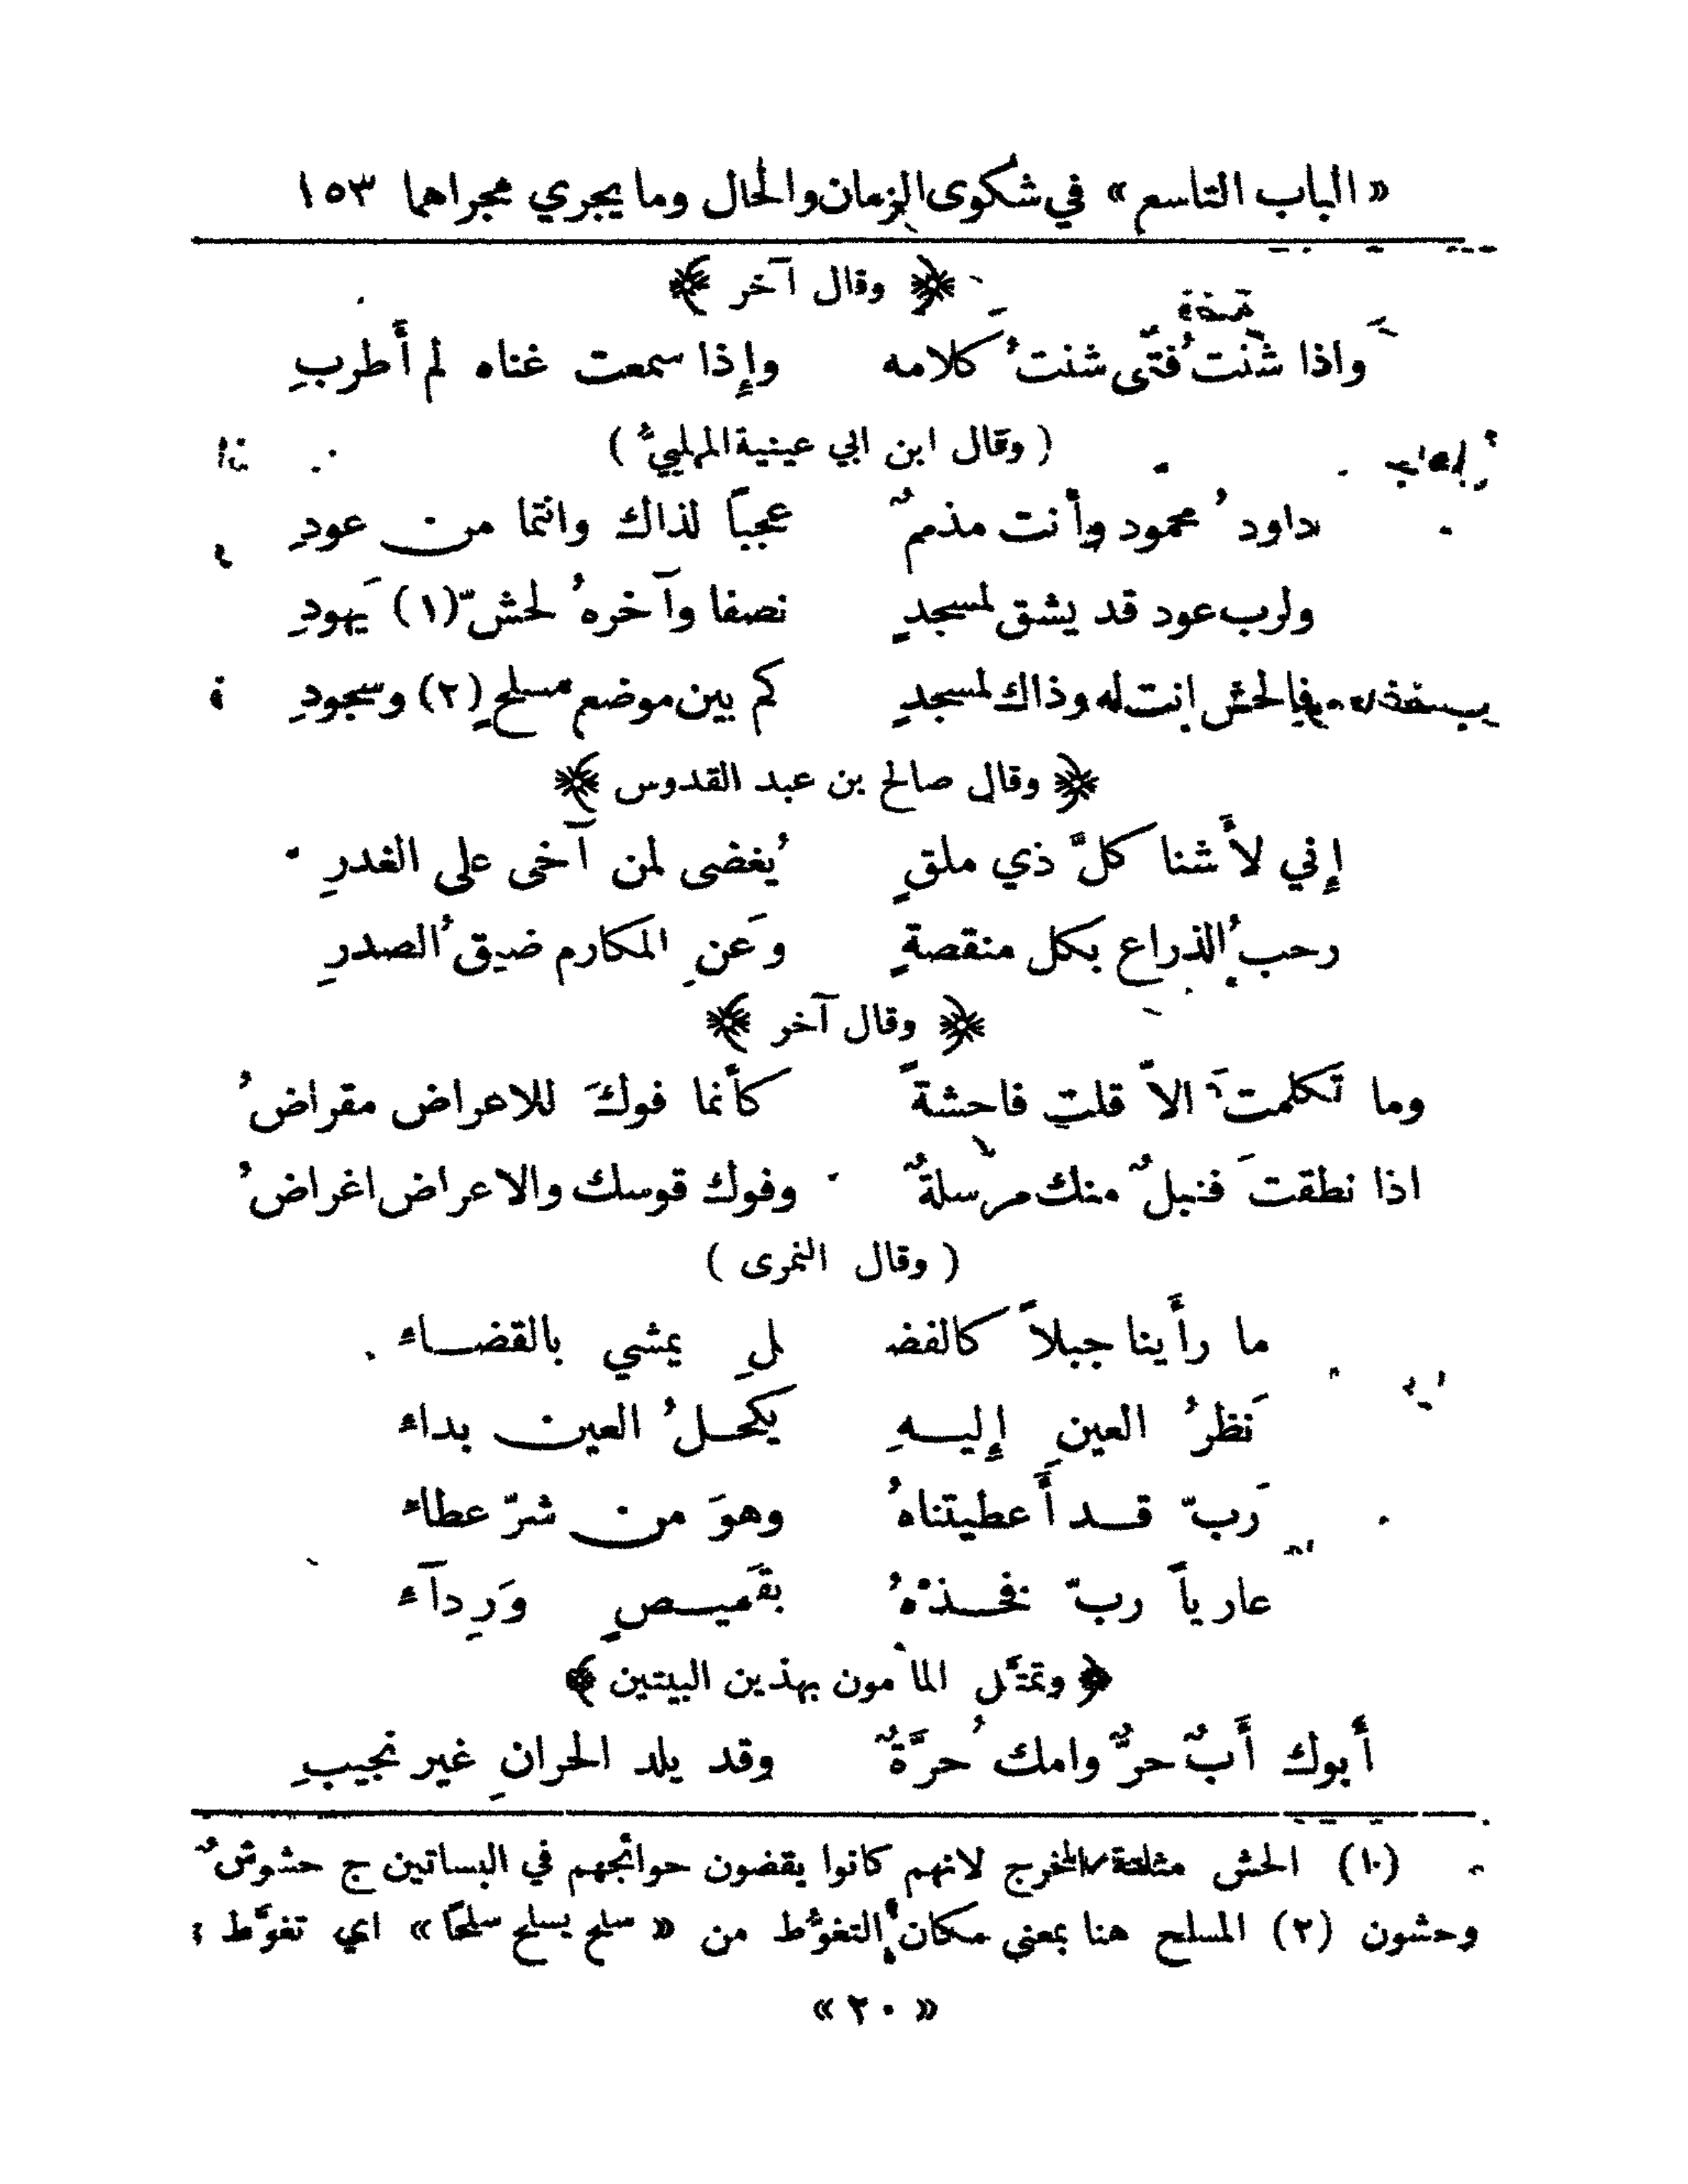 «الباب التاسع» في شكوى الزمان والحال وما يجري مجراهما ١٥٣
﴿ وقال آخر ﴾
واذا شنئتُ فتًى شنئتُ كلامه وإذا سمعت غناه لم أَطربِ
( وقال ابن ابي عيينية المهلبيُّ )
داودُ محمود وأَنت مذممٌ عجباً لذاك وانتما من عودِ
ولرب عود قد يشق لمسجدٍ نصفا وآخرهُ لحشّ (١) يَهودِ
فالحش انت له وذاك لمسجدٍ كم بين موضع مسلحٍ (٢) وسجودِ
﴿ وقال صالح بن عبد القدوس ﴾
إِني لأَشنا كلَّ ذي ملقٍ يُغضى لمن آخى على الغدرِ
رحبُ الذراع بكل منقصةٍ وَعنِ المكارم ضيقُ الصدرِ
﴿ وقال آخر ﴾
وما تَكلمتَ الاّ قلت فاحشةً كأَنما فوكَ للاعراض مقراضُ
اذا نطقتَ فنبلٌ منك مرسلةٌ وفوك قوسك والاعراض اغراضُ
( وقال النمرى )
ما رأَينا جبلاً كالفضـ ـلِ يمشي بالقضاءِ
نَظرُ العينِ إِليهِ يكحلُ العين بداء
رَبّ قد أَعطيتناهُ وهوَ من شرّ عطاء
عارياً ربّ فخذْهُ بقَميصٍ وَرِدآء
﴿ وتمثَّل المأمون بهذين البيتين ﴾
أَبوك أَبٌ حرٌّ وامك حُرَّةٌ وقد يلد الحرانِ غير نجيبِ
(١) الحش مثلثة المخرج لانهم كانوا يقضون حوائجهم في البساتين ج حشوشٌ
وحشون (٢) المسلح هنا بمعنى مكان التغوُّط من « سلح يسلح سلحًا » اي تغوَّط
« ٢٠ »